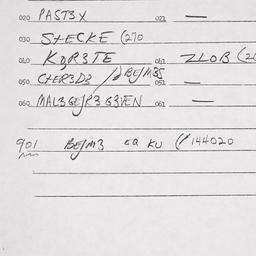 020 PAST3X 021 —
030 STECKE (270
040 KQR3TE 041 ZLOB (2
050 CHER3D3 / BE/M3S 051 —
060 MAL3GE/R3 G3VEN 061 —
901 BE/M3 ca KU (/144020